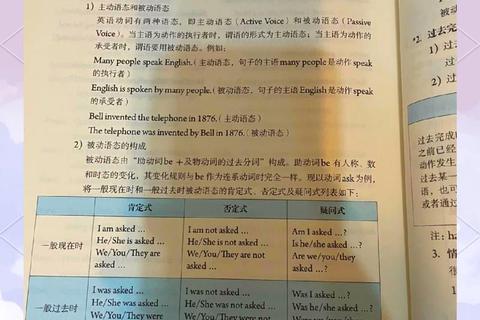 1) 主动语态和被动语态
英语动词有两种语态,即主动语态(Active Voice)和被动语态(Passive
Voice)。当主语为动作的执行者时,谓语的形式为主动语态;当主语为动作的
承受者时,谓语要用被动语态。例如:
Many people speak English.(主动语态,句子的主语many people是动作speak
的执行者)
English is spoken by many people.(被动语态,句子的主语English是动作speak
的承受者)
Bell invented the telephone in 1876.(主动语态)
The telephone was invented by Bell in 1876.(被动语态)
2) 被动语态的构成
被动语态由“助动词be +及物动词的过去分词”构成。助动词be 有人称、数
和时态的变化,其变化规则与be作为连系动词时完全一样。现以动词ask为例,
将一般现在时和一般过去时被动语态的肯定式、否定式及疑问式列表如下:
肯定式 否定式 疑问式
一般现在时
I am asked ...
He/She is asked ...
We/You/They are
asked ...
I am not asked ...
He/She is not asked ...
We/You/They are not
asked ...
Am I asked ...?
Is he/she asked ...?
Are we/you/they
asked ...?
一般过去时
I was asked ...
He/She was asked ...
We/You/They were
I was not asked ...
He/She was not asked ...
We/You/They were not
Was I asked ...?
Was he/she asked ...?
*2. 过去
1) 过
2) 过
过去完成
之前已经
动作发生
过去某一
语,也可
或者通过
注:ha
3. 情